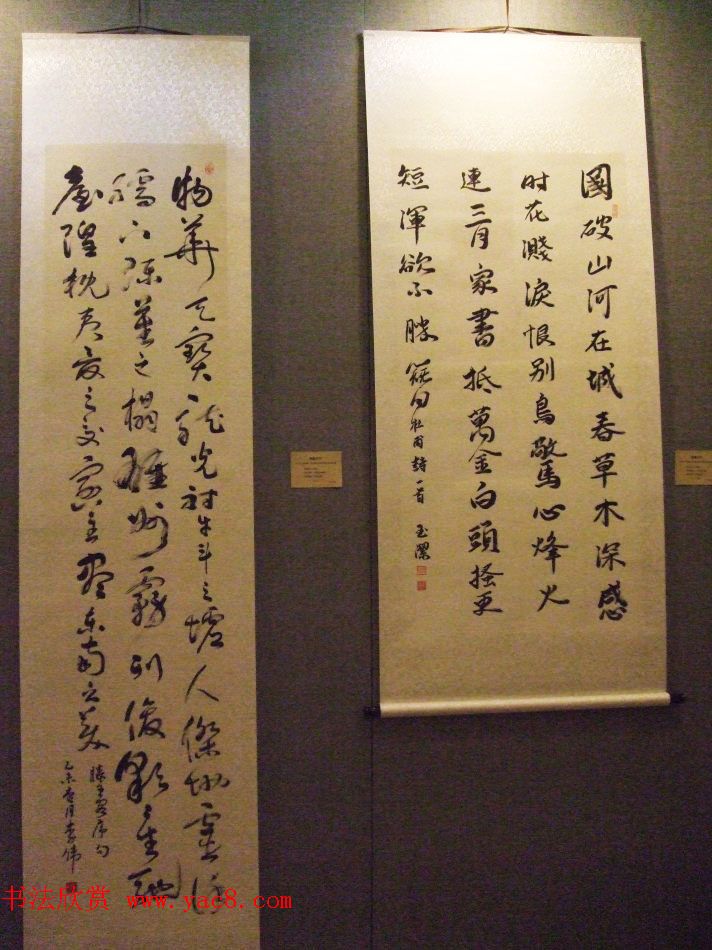 國破山河在城春草木深感
时花濺淚恨别鳥驚心烽火
連三月家書抵萬金白頭搔更
短渾欲不勝簪 杜甫詩一首 玉潔
物華天寶龍光射牛斗之墟人傑地靈徐
孺下陳蕃之榻雄州霧列俊彩星馳
臺隍枕夷夏之交賓主盡東南之美
滕王閣序句
乙未 月李偉
书法欣赏 www.yac8.com